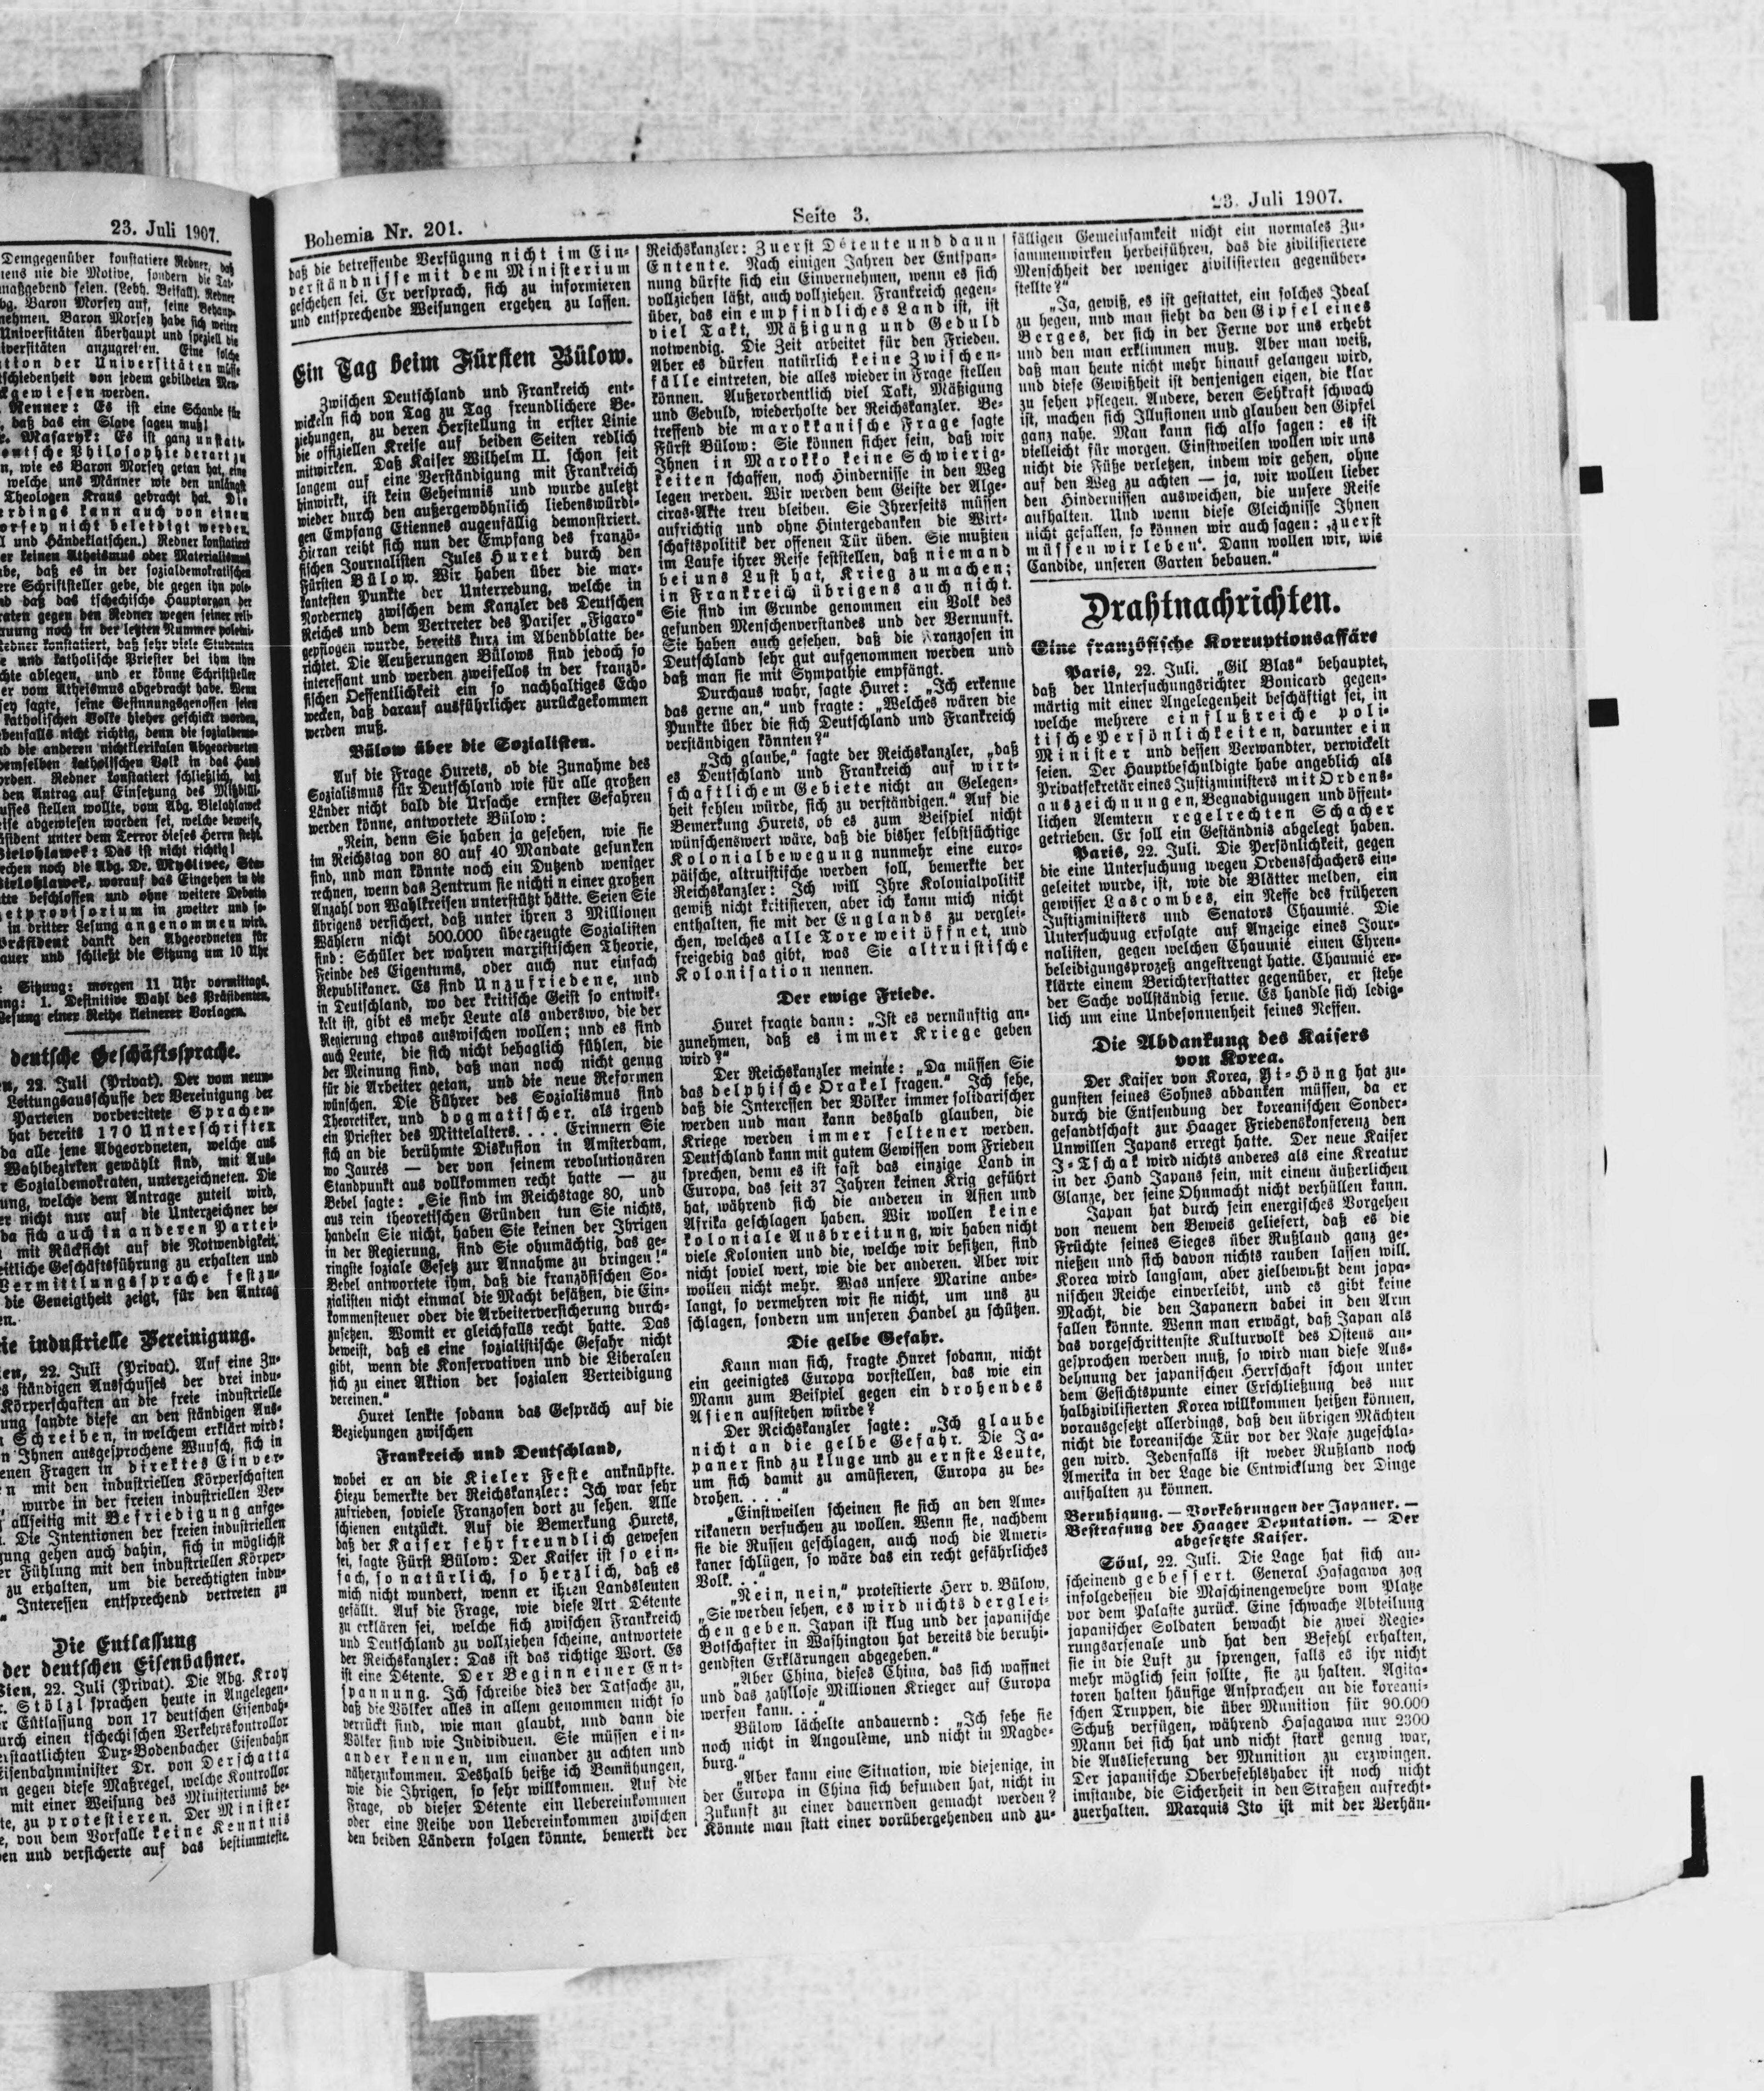 23. Juli 1907.
Demgegenüber konstatiere Redner, daß
nie die Motive, sondern die Tat-
maßgebend seien. (Lebh. Beifall). Redner
Baron Morsey auf, seine Behaup-
nehmen. Baron Morsey habe sich weiters
Universitäten überhaupt und speziell die
Eine solche
der Universitäten müsse
von jedem gebildeten Men-
werden.
Renner: Es ist eine Schande für
daß das ein Slave sagen muß!
Masaryk: Es ist ganz unstatt-
Philosophie derart zu
wie es Baron Morsey getan hat, eine
welche uns Männer wie den unlängst
Theologen Kraus gebracht hat. Die
kann auch von einem
nicht beleidigt werden.
und Händeklatschen.) Redner konstatiert
er keinen Atheismus oder Materialismus
daß es in der sozialdemokratischen
Schriftsteller gebe, die gegen ihn pole-
daß das tschechische Hauptorgan der
gegen den Redner wegen seiner reli-
noch in der letzten Nummer polemi-
Redner konstatiert, daß sehr viele Studenten
und katholische Priester bei ihm ihre
ablegen, und er könne Schriftsteller
er vom Atheismus abgebracht habe. Wenn
sagte, seine Gesinnungsgenossen seien
katholischen Volke hieher geschickt worden,
nicht richtig, denn die sozialdemo-
die anderen nichtklerikalen Abgeordneten
demselben katholischen Volk in das Haus
Redner konstatiert schließlich, daß
den Antrag auf Einsetzung des Mißbilli-
stellen wollte, vom Abg. Bielohlawek
abgewiesen worden sei, welche beweise,
unter dem Terror dieses Herrn steht.
Bielohlawek: Das ist nicht richtig!
noch die Abg. Dr. Myslivec,
Bielohlawek, worauf das Eingehen in die
beschlossen und ohne weitere Debatte
in zweiter und so-
in dritter Lesung angenommen wird.
Präsident dankt den Abgeordneten für
und schließt die Sitzung um 10 Uhr
Sitzung: morgen 11 Uhr vormittags.
1. Definitive Wahl des Präsidenten,
Lesung einer Reihe kleinerer Vorlagen.
deutsche Geschäftssprache.
22. Juli (Privat). Der vom neun-
Leitungsausschusse der Vereinigung der
Parteien vorbereitete Sprachen-
hat bereits 170 Unterschriften
da alle jene Abgeordneten, welche aus
Wahlbezirken gewählt sind, mit Aus-
Sozialdemokraten, unterzeichneten. Die
welche dem Antrage zuteil wird,
nicht nur auf die Unterzeichner be-
da sich auch in anderen Partei-
mit Rücksicht auf die Notwendigkeit,
Geschäftsführung zu erhalten und
Vermittlungssprache festzu-
die Geneigtheit zeigt, für den Antrag
industrielle Vereinigung.
22. Juli (Privat). Auf eine Zu-
ständigen Ausschusses der drei indu-
Körperschaften an die freie industrielle
sandte diese an den ständigen Aus-
Schreiben, in welchem erklärt wird:
Ihnen ausgesprochene Wunsch, sich in
Fragen in direktes Einver-
mit den industriellen Körperschaften
wurde in der freien industriellen Ver-
allseitig mit Befriedigung aufge-
Die Intentionen der freien industriellen
gehen auch dahin, sich in möglichst
Fühlung mit den industriellen Körper-
zu erhalten, um die berechtigten indu-
Interessen entsprechend vertreten zu
Die Entlassung
der deutschen Eisenbahner.
Wien, 22. Juli (Privat). Die Abg. Kroy
Stölzl sprachen heute in Angelegen-
Entlassung von 17 deutschen Eisenbah-
durch einen tschechischen Verkehrskontrollor
Dux-Bodenbacher Eisenbahn
Eisenbahnminister Dr. von Derschatta
gegen diese Maßregel, welche Kontrollor
mit einer Weisung des Ministeriums be-
zu protestieren. Der Minister
von dem Vorfalle keine Kenntnis
und versicherte auf das bestimmteste,
Bohemia Nr. 201.
Seite 3.
23. Juli 1907.
daß die betreffende Verfügung nicht im Ein-
verständnisse mit dem Ministerium
geschehen sei. Er versprach, sich zu informieren
und entsprechende Weisungen ergehen zu lassen.
Ein Tag beim Fürsten Bülow.
Zwischen Deutschland und Frankreich ent-
wickeln sich von Tag zu Tag freundlichere Be-
ziehungen, zu deren Herstellung in erster Linie
die offiziellen Kreise auf beiden Seiten redlich
mitwirken. Daß Kaiser Wilhelm II. schon seit
langem auf eine Verständigung mit Frankreich
hinwirkt, ist kein Geheimnis und wurde zuletzt
wieder durch den außergewöhnlich liebenswürdi-
gen Empfang Etiennes augenfällig demonstriert.
Hieran reiht sich nun der Empfang des franzö-
sischen Journalisten Jules Huret durch den
Fürsten Bülow. Wir haben über die mar-
kantesten Punkte der Unterredung, welche in
Norderney zwischen dem Kanzler des Deutschen
Reiches und dem Vertreter des Pariser „Figaro“
gepflogen wurde, bereits kurz im Abendblatte be-
richtet. Die Aeußerungen Bülows sind jedoch so
interessant und werden zweifellos in der franzö-
sischen Oeffentlichkeit ein so nachhaltiges Echo
wecken, daß darauf ausführlicher zurückgekommen
werden muß.
Bülow über die Sozialisten.
Auf die Frage Hurets, ob die Zunahme des
Sozialismus für Deutschland wie für alle großen
Länder nicht bald die Ursache ernster Gefahren
werden könne, antwortete Bülow:
„Nein, denn Sie haben ja gesehen, wie sie
im Reichstag von 80 auf 40 Mandate gesunken
sind, und man könnte noch ein Dutzend weniger
rechnen, wenn das Zentrum sie nichti n einer großen
Anzahl von Wahlkreisen unterstützt hätte. Seien Sie
übrigens versichert, daß unter ihren 3 Millionen
Wählern nicht 500.000 überzeugte Sozialisten
sind: Schüler der wahren marxistischen Theorie,
Feinde des Eigentums, oder auch nur einfach
Republikaner. Es sind Unzufriedene, und
in Deutschland, wo der kritische Geist so entwik-
kelt ist, gibt es mehr Leute als anderswo, die der
Regierung etwas auswischen wollen; und es sind
auch Leute, die sich nicht behaglich fühlen, die
der Meinung sind, daß man noch nicht genug
für die Arbeiter getan, und die neue Reformen
wünschen. Die Führer des Sozialismus sind
Theoretiker, und dogmatischer, als irgend
ein Priester des Mittelalters. . . . Erinnern Sie
sich an die berühmte Diskusion in Amsterdam,
wo Jaurés — der von seinem revolutionären
Standpunkt aus vollkommen recht hatte — zu
Bebel sagte: „Sie sind im Reichstage 80, und
aus rein theoretischen Gründen tun Sie nichts,
handeln Sie nicht, haben Sie keinen der Ihrigen
in der Regierung, sind Sie ohnmächtig, das ge-
ringste soziale Gesetz zur Annahme zu bringen!“
Bebel antwortete ihm, daß die französischen So-
zialisten nicht einmal die Macht besäßen, die Ein-
kommensteuer oder die Arbeiterversicherung durch-
zusetzen. Womit er gleichfalls recht hatte. Das
beweist, daß es eine sozialistische Gefahr nicht
gibt, wenn die Konservativen und die Liberalen
sich zu einer Aktion der sozialen Verteidigung
vereinen.“
Huret lenkte sodann das Gespräch auf die
Beziehungen zwischen
Frankreich und Deutschland,
wobei er an die Kieler Feste anknüpfte.
Hiezu bemerkte der Reichskanzler: Ich war sehr
zufrieden, soviele Franzosen dort zu sehen. Alle
schienen entzückt. Auf die Bemerkung Hurets,
daß der Kaiser sehr freundlich gewesen
sei, sagte Fürst Bülow: Der Kaiser ist so ein-
fach, so natürlich, so herzlich, daß es
mich nicht wundert, wenn er ihren Landsleuten
gefällt. Auf die Frage, wie diese Art Détente
zu erklären sei, welche sich zwischen Frankreich
und Deutschland zu vollziehen scheine, antwortete
der Reichskanzler: Das ist das richtige Wort. Es
ist eine Détente. Der Beginn einer Ent-
spannung. Ich schreibe dies der Tatsache zu,
daß die Völker alles in allem genommen nicht so
verrückt sind, wie man glaubt, und dann die
Völker sind wie Individuen. Sie müssen ein-
ander kennen, um einander zu achten und
näherzukommen. Deshalb heiße ich Bemühungen,
wie die Ihrigen, so sehr willkommen. Auf die
Frage, ob dieser Détente ein Uebereinkommen
oder eine Reihe von Uebereinkommen zwischen
den beiden Ländern folgen könnte, bemerkt der
Reichskanzler: Zuerst Détente und dann
Entente. Nach einigen Jahren der Entspan-
nung dürfte sich ein Einvernehmen, wenn es sich
vollziehen läßt, auch vollziehen. Frankreich gegen-
über, das ein empfindliches Land ist, ist
viel Takt, Mäßigung und Geduld
notwendig. Die Zeit arbeitet für den Frieden.
Aber es dürfen natürlich keine Zwischen-
fälle eintreten, die alles wieder in Frage stellen
können. Außerordentlich viel Takt, Mäßigung
und Geduld, wiederholte der Reichskanzler. Be-
treffend die marokkanische Frage sagte
Fürst Bülow: Sie können sicher sein, daß wir
Ihnen in Marokko keine Schwierig-
keiten schaffen, noch Hindernisse in den Weg
legen werden. Wir werden dem Geiste der Alge-
ciras-Akte treu bleiben. Sie Ihrerseits müssen
aufrichtig und ohne Hintergedanken die Wirt-
schaftspolitik der offenen Tür üben. Sie mußten
im Laufe ihrer Reise feststellen, daß niemand
bei uns Lust hat, Krieg zu machen;
in Frankreich übrigens auch nicht.
Sie sind im Grunde genommen ein Volk des
gesunden Menschenverstandes und der Vernunft.
Sie haben auch gesehen, daß die Franzosen in
Deutschland sehr gut aufgenommen werden und
daß man sie mit Sympathie empfängt.
Durchaus wahr, sagte Huret: „Ich erkenne
das gerne an,“ und fragte: „Welches wären die
Punkte über die sich Deutschland und Frankreich
verständigen könnten?“
„Ich glaube,“ sagte der Reichskanzler, „daß
es Deutschland und Frankreich auf wirt-
schaftlichem Gebiete nicht an Gelegen-
heit fehlen würde, sich zu verständigen.“ Auf die
Bemerkung Hurets, ob es zum Beispiel nicht
wünschenswert wäre, daß die bisher selbstsüchtige
Kolonialbewegung nunmehr eine euro-
päische, altruistische werden soll, bemerkte der
Reichskanzler: Ich will Ihre Kolonialpolitik
gewiß nicht kritisieren, aber ich kann mich nicht
enthalten, sie mit der Englands zu verglei-
chen, welches alle Tore weit öffnet, und
freigebig das gibt, was Sie altruistische
Kolonisation nennen.
Der ewige Friede.
Huret fragte dann: „Ist es vernünftig an-
zunehmen, daß es immer Kriege geben
wird?“
Der Reichskanzler meinte: „Da müssen Sie
das delphische Orakel fragen.“ Ich sehe,
daß die Interessen der Völker immer solidarischer
werden und man kann deshalb glauben, die
Kriege werden immer seltener werden.
Deutschland kann mit gutem Gewissen vom Frieden
sprechen, denn es ist fast das einzige Land in
Europa, das seit 37 Jahren keinen Krig geführt
hat, während sich die anderen in Asien und
Afrika geschlagen haben. Wir wollen keine
koloniale Ausbreitung, wir haben nicht
viele Kolonien und die, welche wir besitzen, sind
nicht soviel wert, wie die der anderen. Aber wir
wollen nicht mehr. Was unsere Marine anbe-
langt, so vermehren wir sie nicht, um uns zu
schlagen, sondern um unseren Handel zu schützen.
Die gelbe Gefahr.
Kann man sich, fragte Huret sodann, nicht
ein geeinigtes Europa vorstellen, das wie ein
Mann zum Beispiel gegen ein drohendes
Asien aufstehen würde?
Der Reichskanzler sagte: „Ich glaube
nicht an die gelbe Gefahr. Die Ja-
paner sind zu kluge und zu ernste Leute,
um sich damit zu amüsieren, Europa zu be-
drohen. . . .“
„Einstweilen scheinen sie sich an den Ame-
rikanern versuchen zu wollen. Wenn sie, nachdem
sie die Russen geschlagen, auch noch die Ameri-
kaner schlügen, so wäre das ein recht gefährliches
Volk. . .“
„Nein, nein,“ protestierte Herr v. Bülow,
„Sie werden sehen, es wird nichts derglei-
chen geben. Japan ist klug und der japanische
Botschafter in Washington hat bereits die beruhi-
gendsten Erklärungen abgegeben.“
„Aber China, dieses China, das sich waffnet
und das zahllose Millionen Krieger auf Europa
werfen kann. . .“
Bülow lächelte andauernd: „Ich sehe sie
noch nicht in Angoulème, und nicht in Magde-
burg.“
„Aber kann eine Situation, wie diejenige, in
der Europa in China sich befunden hat, nicht in
Zukunft zu einer dauernden gemacht werden?
Könnte man statt einer vorübergehenden und zu-
fälligen Gemeinsamkeit nicht ein normales Zu-
sammenwirken herbeiführen, das die zivilisiertere
Menschheit der weniger zivilisierten gegenüber-
stellte?“
„Ja, gewiß, es ist gestattet, ein solches Ideal
zu hegen, und man sieht da den Gipfel eines
Berges, der sich in der Ferne vor uns erhebt
und den man erklimmen muß. Aber man weiß,
daß man heute nicht mehr hinauf gelangen wird,
und diese Gewißheit ist denjenigen eigen, die klar
zu sehen pflegen. Andere, deren Sehkraft schwach
ist, machen sich Illusionen und glauben den Gipfel
ganz nahe. Man kann sich also sagen: es ist
vielleicht für morgen. Einstweilen wollen wir uns
nicht die Füße verletzen, indem wir gehen, ohne
auf den Weg zu achten — ja, wir wollen lieber
den Hindernissen ausweichen, die unsere Reise
aufhalten. Und wenn diese Gleichnisse Ihnen
nicht gefallen, so können wir auch sagen: ‚zuerst
müssen wir leben‘. Dann wollen wir, wie
Candide, unseren Garten bebauen.“
Drahtnachrichten.
Eine französische Korruptionsaffäre
Paris, 22. Juli. „Gil Blas“ behauptet,
daß der Untersuchungsrichter Bonicard gegen-
märtig mit einer Angelegenheit beschäftigt sei, in
welche mehrere einflußreiche poli-
tische Persönlichkeiten, darunter ein
Minister und dessen Verwandter, verwickelt
seien. Der Hauptbeschuldigte habe angeblich als
Privatsekretär eines Justizministers mit Ordens-
auszeichnungen, Begnadigungen und öffent-
lichen Aemtern regelrechten Schacher
getrieben. Er soll ein Geständnis abgelegt haben.
Paris, 22. Juli. Die Persönlichkeit, gegen
die eine Untersuchung wegen Ordensschachers ein-
geleitet wurde, ist, wie die Blätter melden, ein
gewisser Lascombes, ein Neffe des früheren
Justizministers und Senators Chaumié. Die
Untersuchung erfolgte auf Anzeige eines Jour-
nalisten, gegen welchen Chaumié einen Ehren-
beleidigungsprozeß angestrengt hatte. Chaumié er-
klärte einem Berichterstatter gegenüber, er stehe
der Sache vollständig ferne. Es handle sich ledig-
lich um eine Unbesonnenheit seines Neffen.
Die Abdankung des Kaisers
von Korea.
Der Kaiser von Korea, Yi-Höng hat zu-
gunsten seines Sohnes abdanken müssen, da er
durch die Entsendung der koreanischen Sonder-
gesandtschaft zur Haager Friedenskonferenz den
Unwillen Japans erregt hatte. Der neue Kaiser
J-Tschak wird nichts anderes als eine Kreatur
in der Hand Japans sein, mit einem äußerlichen
Glanze, der seine Ohnmacht nicht verhüllen kann.
Japan hat durch sein energisches Vorgehen
von neuem den Beweis geliefert, daß es die
Früchte seines Sieges über Rußland ganz ge-
nießen und sich davon nichts rauben lassen will.
Korea wird langsam, aber zielbewußt dem japa-
nischen Reiche einverleibt, und es gibt keine
Macht, die den Japanern dabei in den Arm
fallen könnte. Wenn man erwägt, daß Japan als
das vorgeschrittenste Kulturvolk des Ostens an-
gesprochen werden muß, so wird man diese Aus-
dehnung der japanischen Herrschaft schon unter
dem Gesichtspunkte einer Erschließung des nur
halbzivilisierten Korea willkommen heißen können,
vorausgesetzt allerdings, daß den übrigen Mächten
nicht die koreanische Tür vor der Nase zugeschla-
gen wird. Jedenfalls ist weder Rußland noch
Amerika in der Lage die Entwicklung der Dinge
aufhalten zu können.
Beruhigung. — Vorkehrungen der Japaner. —
Bestrafung der Haager Deputation. — Der
abgesetzte Kaiser.
Söul, 22. Juli. Die Lage hat sich an-
scheinend gebessert. General Hasagawa zog
infolgedessen die Maschinengewehre vom Platze
vor dem Palaste zurück. Eine schwache Abteilung
japanischer Soldaten bewacht die zwei Regie-
rungsarsenale und hat den Befehl erhalten,
sie in die Luft zu sprengen, falls es ihr nicht
mehr möglich sein sollte, sie zu halten. Agita-
toren halten häufige Ansprachen an die koreani-
schen Truppen, die über Munition für 90.000
Schuß verfügen, während Hasagawa nur 2300
Mann bei sich hat und nicht stark genug war,
die Auslieferung der Munition zu erzwingen.
Der japanische Oberbefehlshaber ist noch nicht
imstande, die Sicherheit in den Straßen aufrecht-
zuerhalten. Marquis Ito ist mit der Verhän-